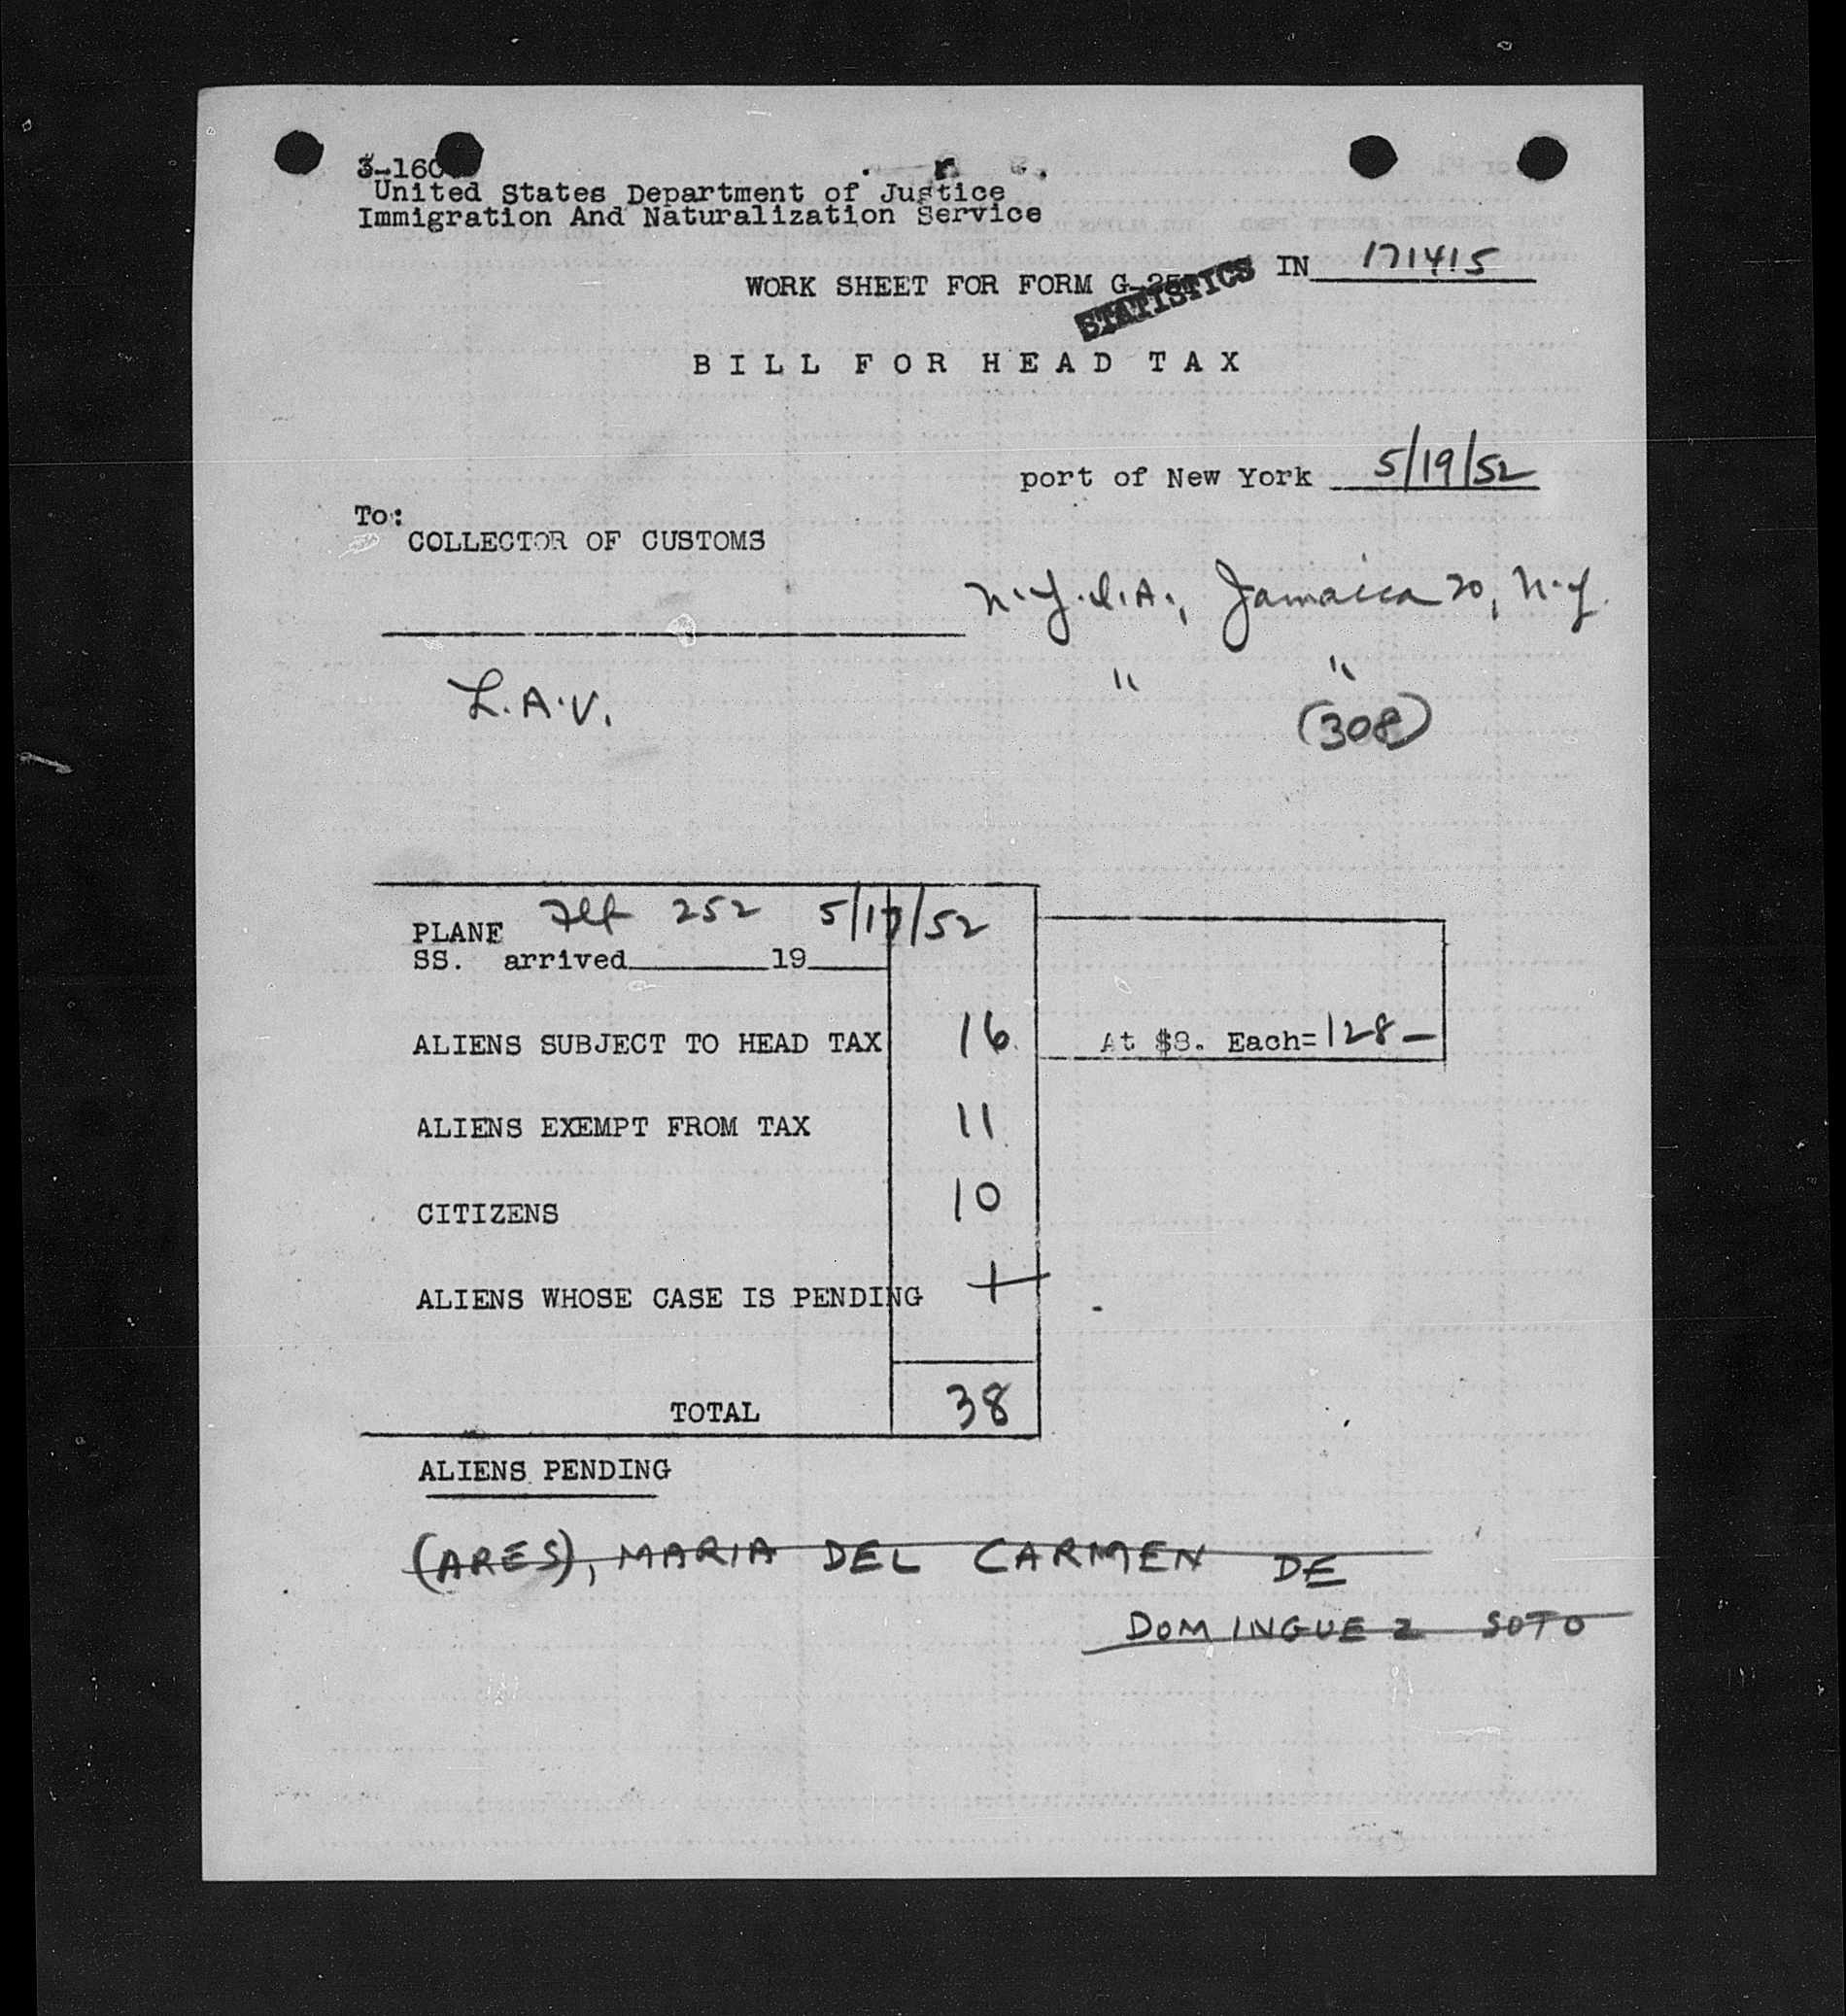 3-160
United States Department of Justice
Immigration And Naturalization Service
WORK SHEET FOR FORM G-25 IN 171415
STATISTICS
BILL FOR HEAD TAX
port of New York 5/19/52
To:
COLLECTOR OF CUSTOMS
N.Y.I.A., Jamaica 20, N.Y.
L.A.V. " "
(308)
PLANE Flt 252 5/17/52
SS. arrived 19
ALIENS SUBJECT TO HEAD TAX 16 At $8. Each= 128 –
ALIENS EXEMPT FROM TAX 11
CITIZENS 10
ALIENS WHOSE CASE IS PENDING 1
TOTAL 38
ALIENS PENDING
(ARES), MARIA DEL CARMEN DE
DOMINGUEZ SOTO